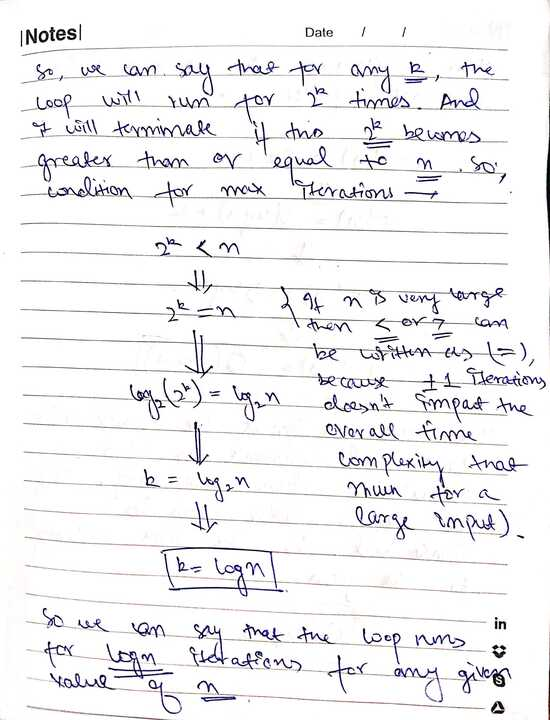 |Notes|
Date / /
So, we can say that for any k, the
loop will run for 2^k times. And
it will terminate if this 2^k becomes
greater than or equal to n. So,
condition for max iterations →
2^k < n
⇓
2^k = n
⇓
log₂(2^k) = log₂n
⇓
k = log₂n
⇓
k = logn
{ If n is very large
then ≤ or ≥ can
be written as (=),
because ±1 iterations
doesn't impact the
overall time
complexity that
much for a
large input).
So we can say that the loop runs
for logn iterations for any given
value of n
in